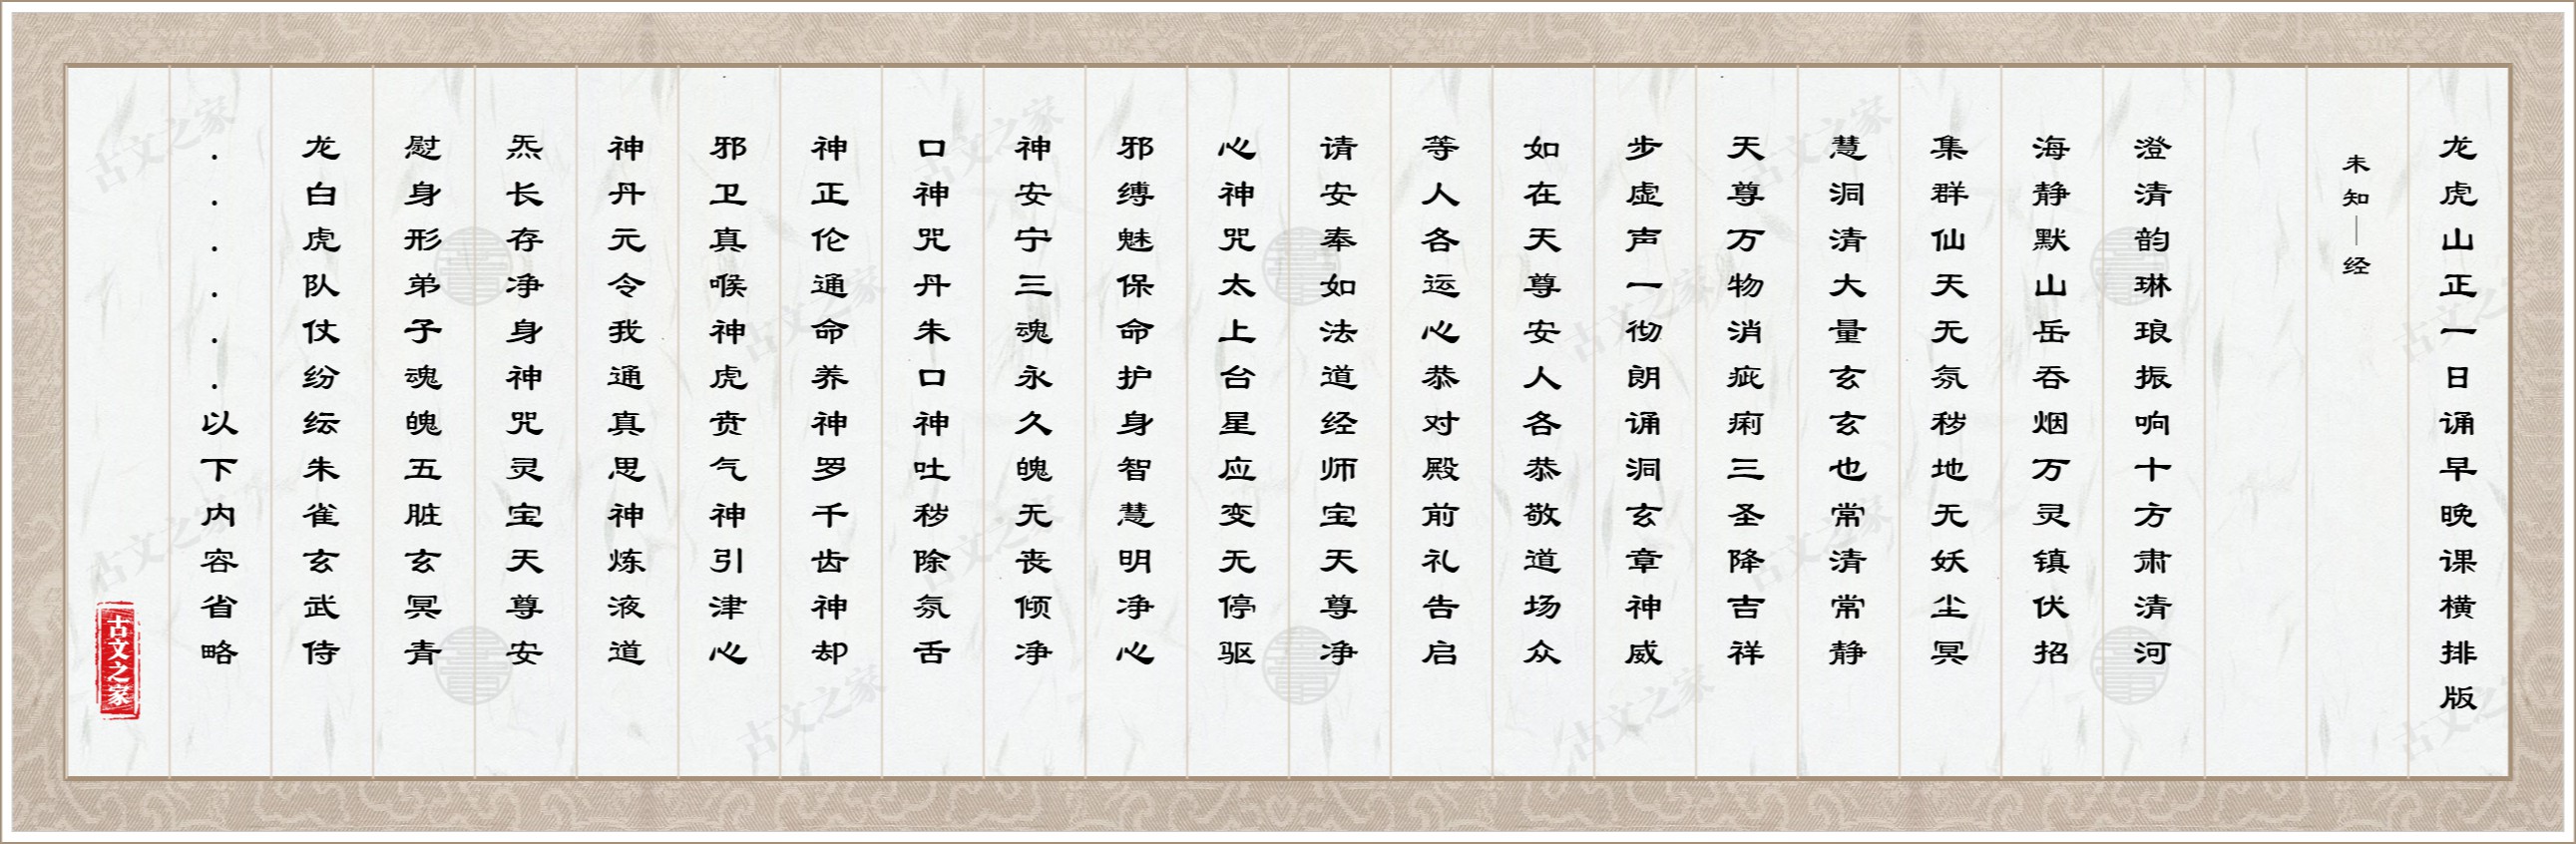 龙虎山正一日诵早晚课横排版
未知｜经
澄清韵琳琅振响十方肃清河
海静默山岳吞烟万灵镇伏招
集群仙天无氛秽地无妖尘冥
慧洞清大量玄玄也常清常静
天尊万物消疵痾三圣降吉祥
步虚声一彻朗诵洞玄章神威
如在天尊安人各恭敬道场众
等人各运心恭对殿前礼告启
请安奉如法道经师宝天尊净
心神咒太上台星应变无停驱
邪缚魅保命护身智慧明净心
神安宁三魂永久魄无丧倾净
口神咒丹朱口神吐秽除氛舌
神正伦通命养神罗千齿神却
邪卫真喉神虎贲气神引津心
神丹元令我通真思神炼液道
炁长存净身神咒灵宝天尊安
慰身形弟子魂魄五脏玄冥青
龙白虎队仗纷纭朱雀玄武侍
......以下内容省略
古文之家